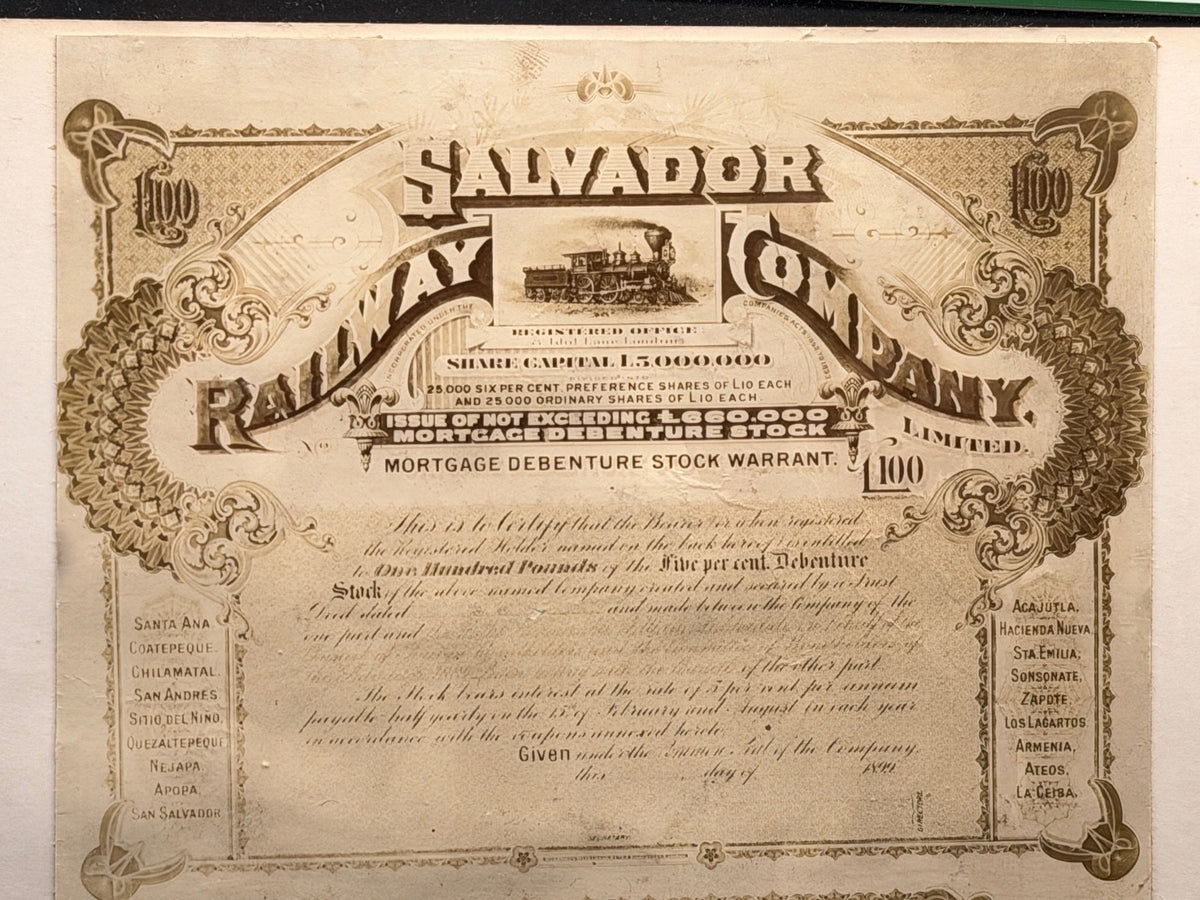 £100
£100
SALVADOR
RAILWAY COMPANY,
LIMITED.
INCORPORATED UNDER THE
COMPANIES ACTS
REGISTERED OFFICE
Idol Lane London
SHARE CAPITAL £5,000,000
DIVIDED INTO
25,000 SIX PER CENT. PREFERENCE SHARES OF £10 EACH
AND 25,000 ORDINARY SHARES OF £10 EACH.
ISSUE OF NOT EXCEEDING £660,000
MORTGAGE DEBENTURE STOCK
No.
MORTGAGE DEBENTURE STOCK WARRANT.
£100
This is to Certify that the Bearer or when registered
the Registered Holder named on the back hereof is entitled
to One Hundred Pounds of the Five per cent. Debenture
Stock of the above named Company created and secured by a Trust
Deed dated and made between the Company of the
one part and
of the other part
The Stock bears interest at the rate of 5 per cent. per annum
payable half yearly on the 15th of February and August in each year
in accordance with the coupons annexed hereto.
Given under the Common Seal of the Company.
this day of 1899
SECRETARY.
DIRECTORS
SANTA ANA
COATEPEQUE.
CHILAMATAL.
SAN ANDRES
SITIO DEL NINO,
QUEZALTEPEQUE
NEJAPA.
APOPA.
SAN SALVADOR
ACAJUTLA,
HACIENDA NUEVA
STA. EMILIA,
SONSONATE,
ZAPOTE,
LOS LAGARTOS.
ARMENIA,
ATEOS,
LA CEIBA.